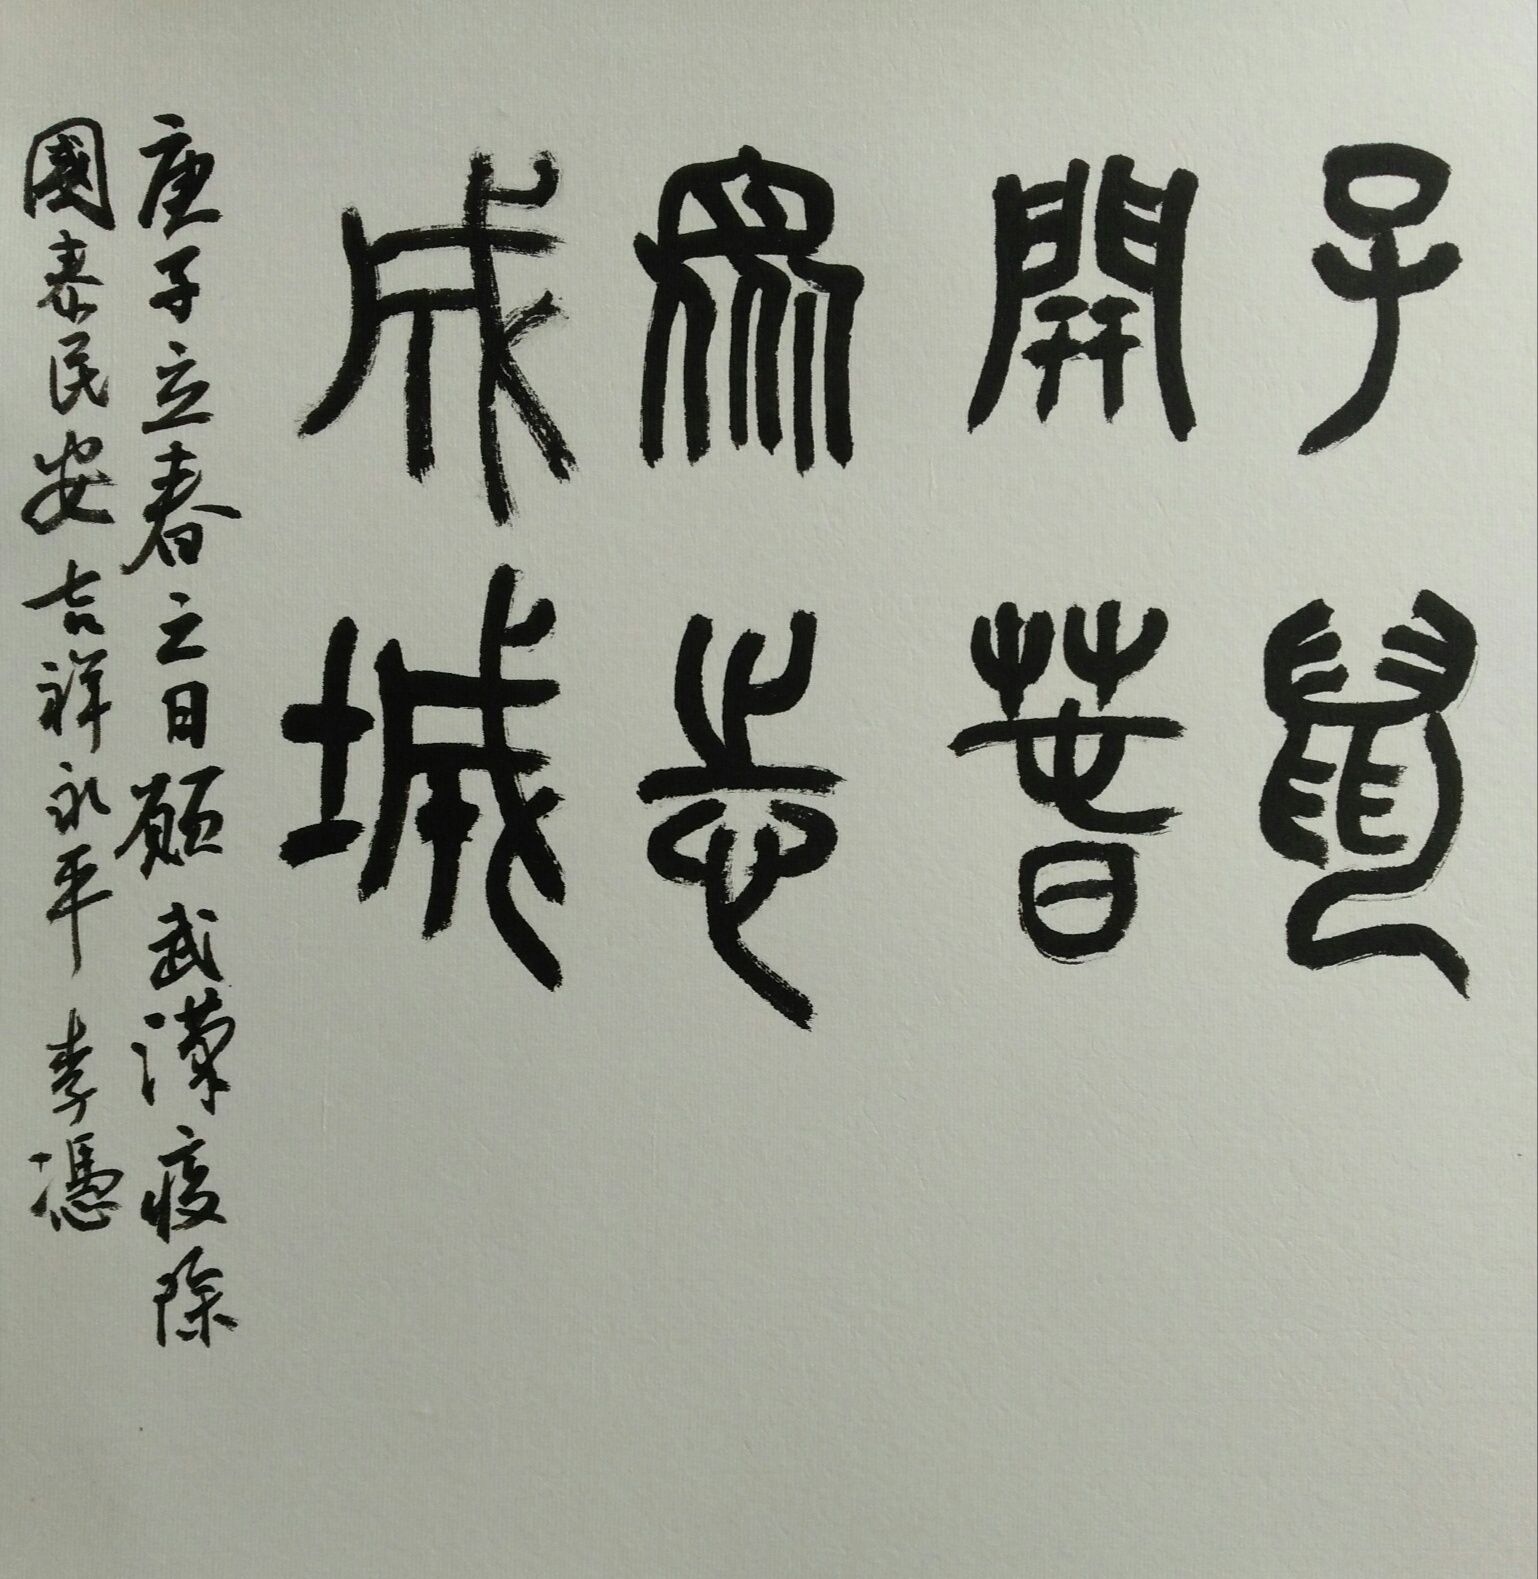 子鼠
開春
眾志
成城
庚子立春之日願武漢疫除
國泰民安吉祥永平 李憑